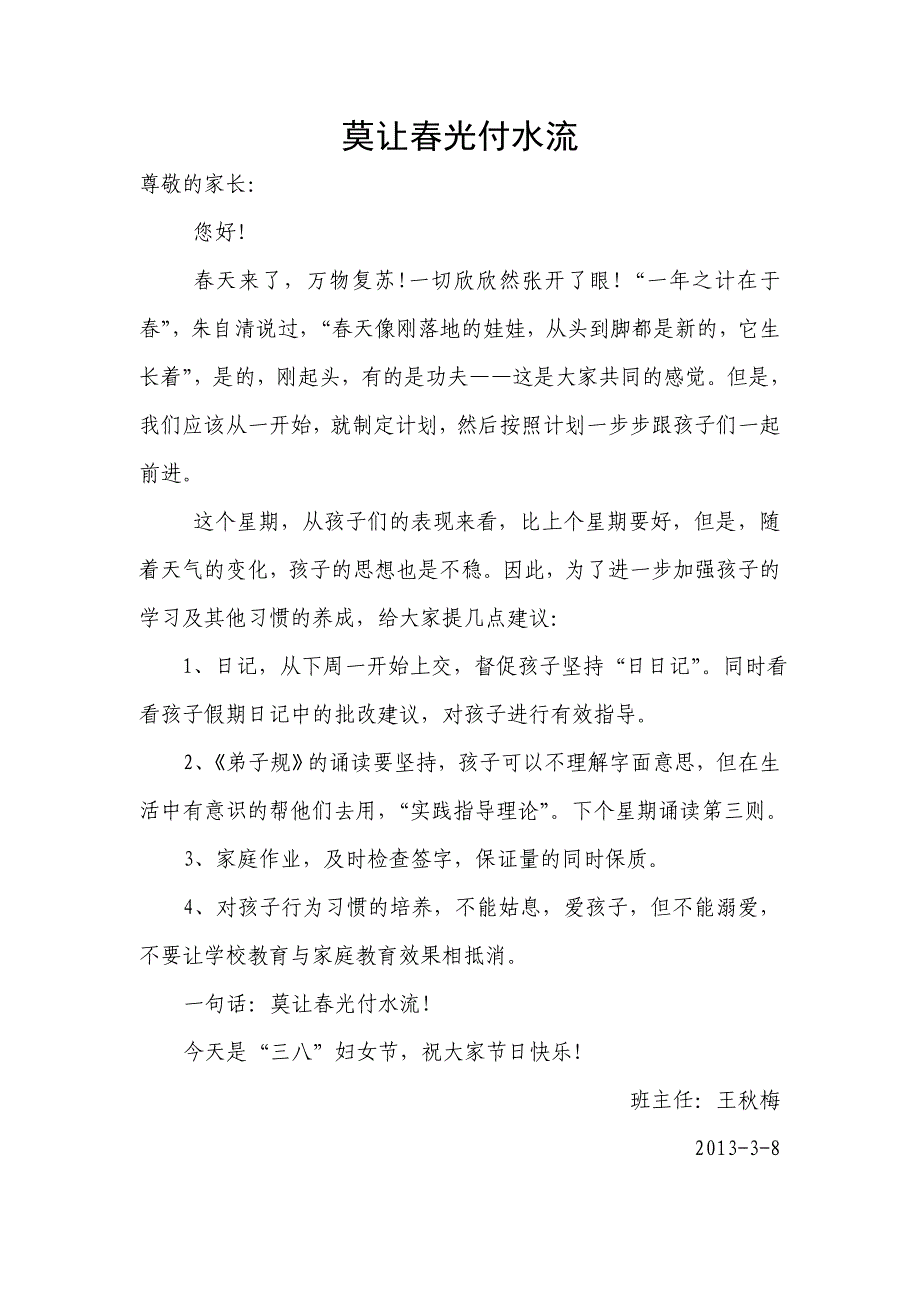 莫让春光付水流
尊敬的家长：
您好！
春天来了，万物复苏！一切欣欣然张开了眼！“一年之计在于
春”，朱自清说过，“春天像刚落地的娃娃，从头到脚都是新的，它生
长着”，是的，刚起头，有的是功夫——这是大家共同的感觉。但是，
我们应该从一开始，就制定计划，然后按照计划一步步跟孩子们一起
前进。
这个星期，从孩子们的表现来看，比上个星期要好，但是，随
着天气的变化，孩子的思想也是不稳。因此，为了进一步加强孩子的
学习及其他习惯的养成，给大家提几点建议：
1、日记，从下周一开始上交，督促孩子坚持“日日记”。同时看
看孩子假期日记中的批改建议，对孩子进行有效指导。
2、《弟子规》的诵读要坚持，孩子可以不理解字面意思，但在生
活中有意识的帮他们去用，“实践指导理论”。下个星期诵读第三则。
3、家庭作业，及时检查签字，保证量的同时保质。
4、对孩子行为习惯的培养，不能姑息，爱孩子，但不能溺爱，
不要让学校教育与家庭教育效果相抵消。
一句话：莫让春光付水流！
今天是“三八”妇女节，祝大家节日快乐！
班主任：王秋梅
2013-3-8